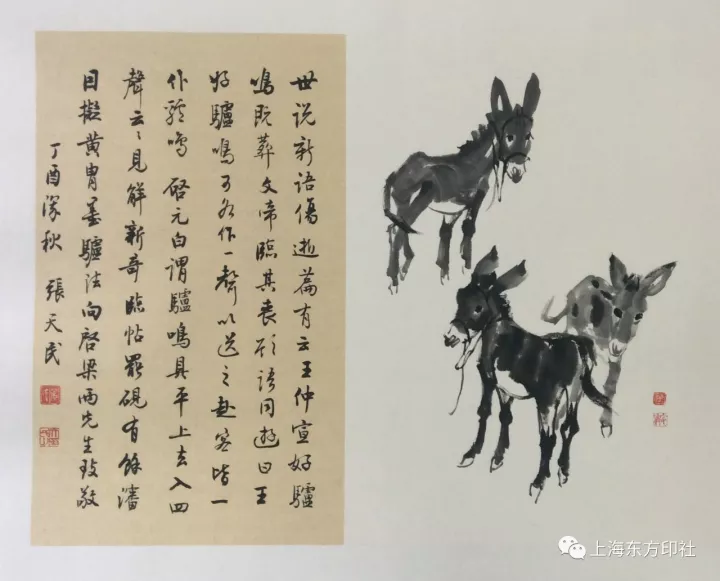 世说新语伤逝篇有云王仲宣好驢
鳴既葬文帝臨其喪顾语同遊曰王
好驢鳴可各作一聲以送之赴客皆一
作驴鸣 啓元白谓驢鳴具平上去入四
聲云〻見解新奇臨帖罷硯有餘瀋
因擬黄胄墨驢法向啓梁兩先生致敬
丁酉深秋 張天民
上海东方印社